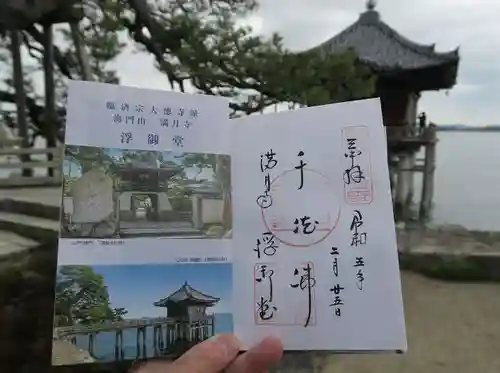 臨済宗大徳寺派
海門山 満月寺
浮御堂
奉拝
令和五年
二月廿五日
千体佛
満月寺 浮御堂